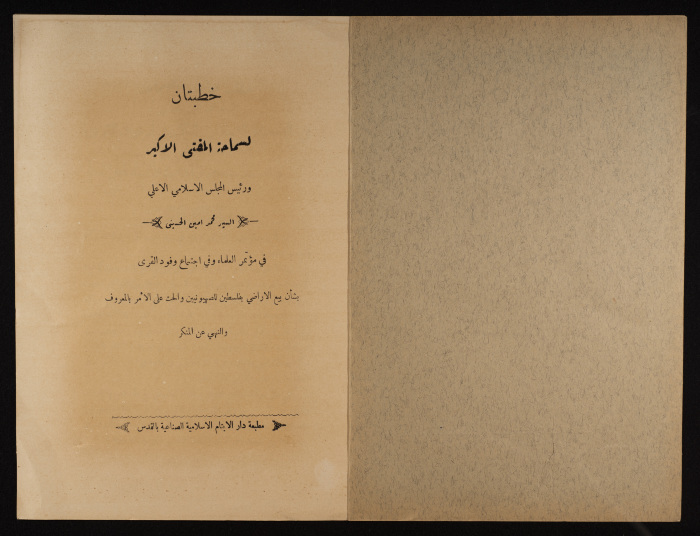 خطبتان
لسماحة المفتى الاكبر
ورئيس المجلس الاسلامي الاعلى
السيد محمد امين الحسيني
في مؤتمر العلماء وفي اجتماع وفود القرى
بشأن بيع الاراضي بفلسطين للصهيونيين والحث على الأمر بالمعروف
والنهي عن المنكر
مطبعة دار الايتام الاسلامية الصناعية بالقدس